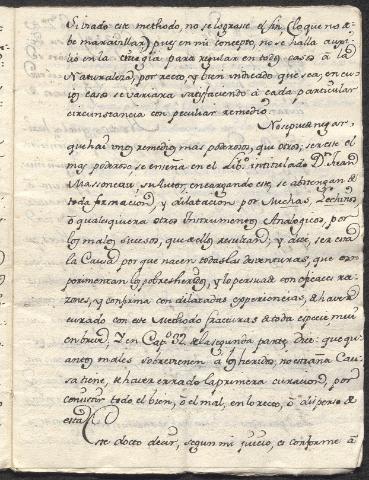 Si usado este methodo, no se lograse el fin (lo que no de-
be maravillar) pues en mi concepto, no se halla auxi-
lio en la cirugia para regular en todos casos à la
Naturaleza, por recto, y bien indicado que sea, en cu-
ios casos se variarà satisfaciendo à cada particular
circunstancia con peculiar remedio.
No se puede negar,
que hai unos remedios mas poderosos, que otros; ser este el
mas poderoso, se enseña en el libro intitulado
su Autor, encargando este, se abstengan de
toda formacion, y dilatacion, por Mechas, Lechinos
ò qualesquiera otros Instrumentos Analogicos, por
los malos sucesos, que de ellos resultan, y dice, ser esta
la Causa por que nacen todas las desventuras, que ex-
perimentan los pobres heridos, y lo persuade con eficaces ra-
zones, y confirma con dilatadas experiencias, de haver
curado con este Methodo fracturas de toda especie mui
en breve, y en Cap. de la segunda parte, dice: que qu-
antos males sobrevienen à los heridos, no estraña Cau-
sa tiene, de haver errado la primera curacion, por
consistir todo el bien, ò el mal, en lo recto, ò disperso de
esta.
Este docto decir, segun mi juicio, es conforme à